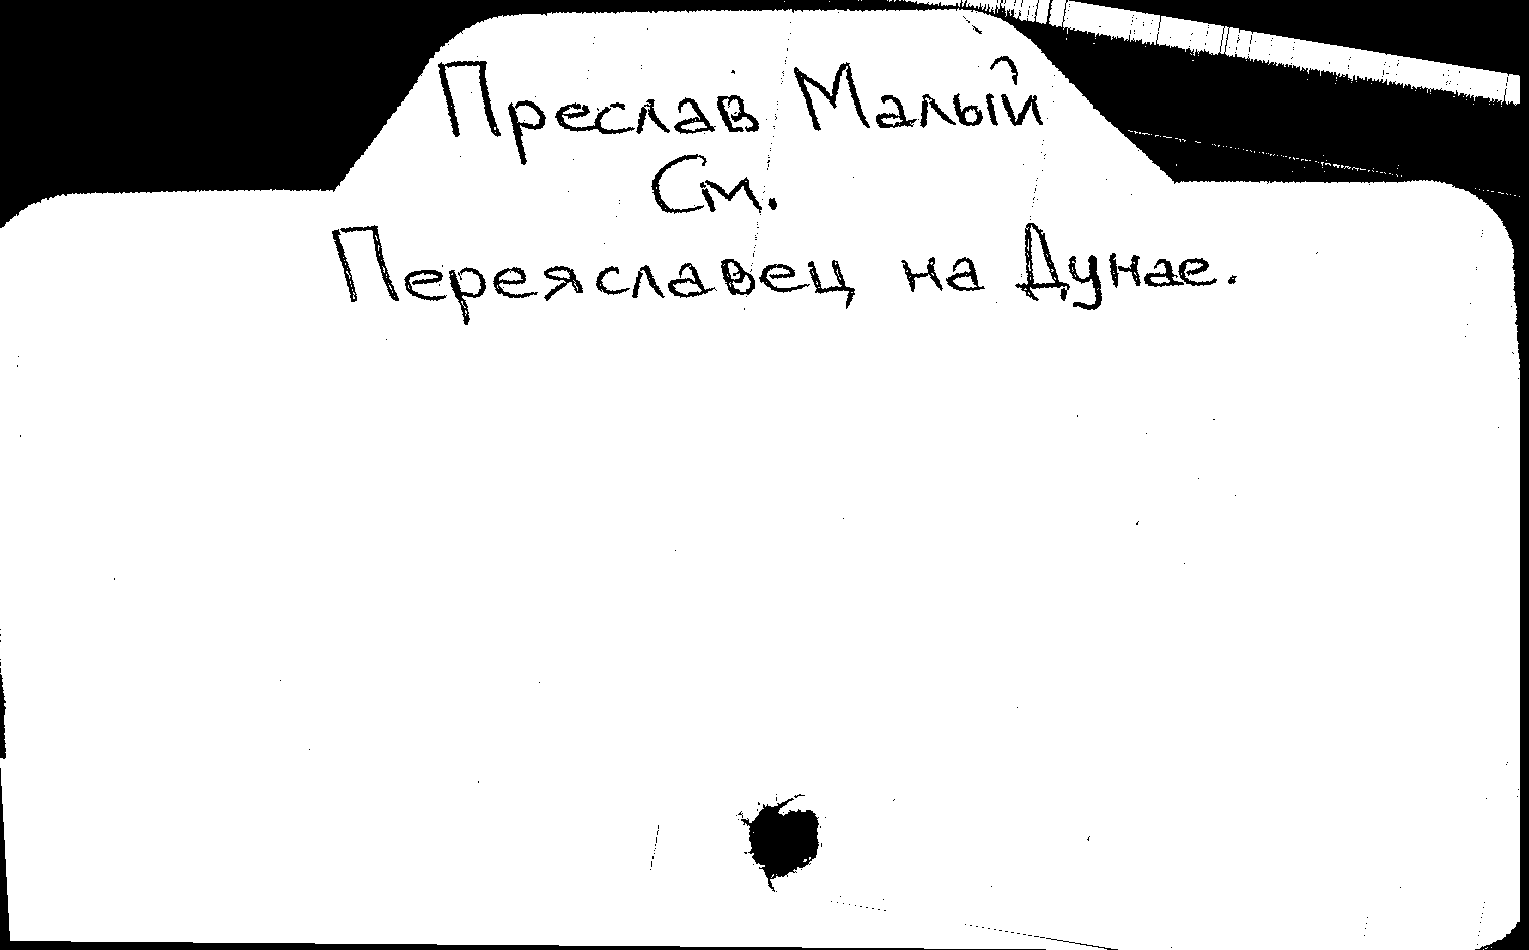 Преслав Малый
См.
Переяславец на Дунае.